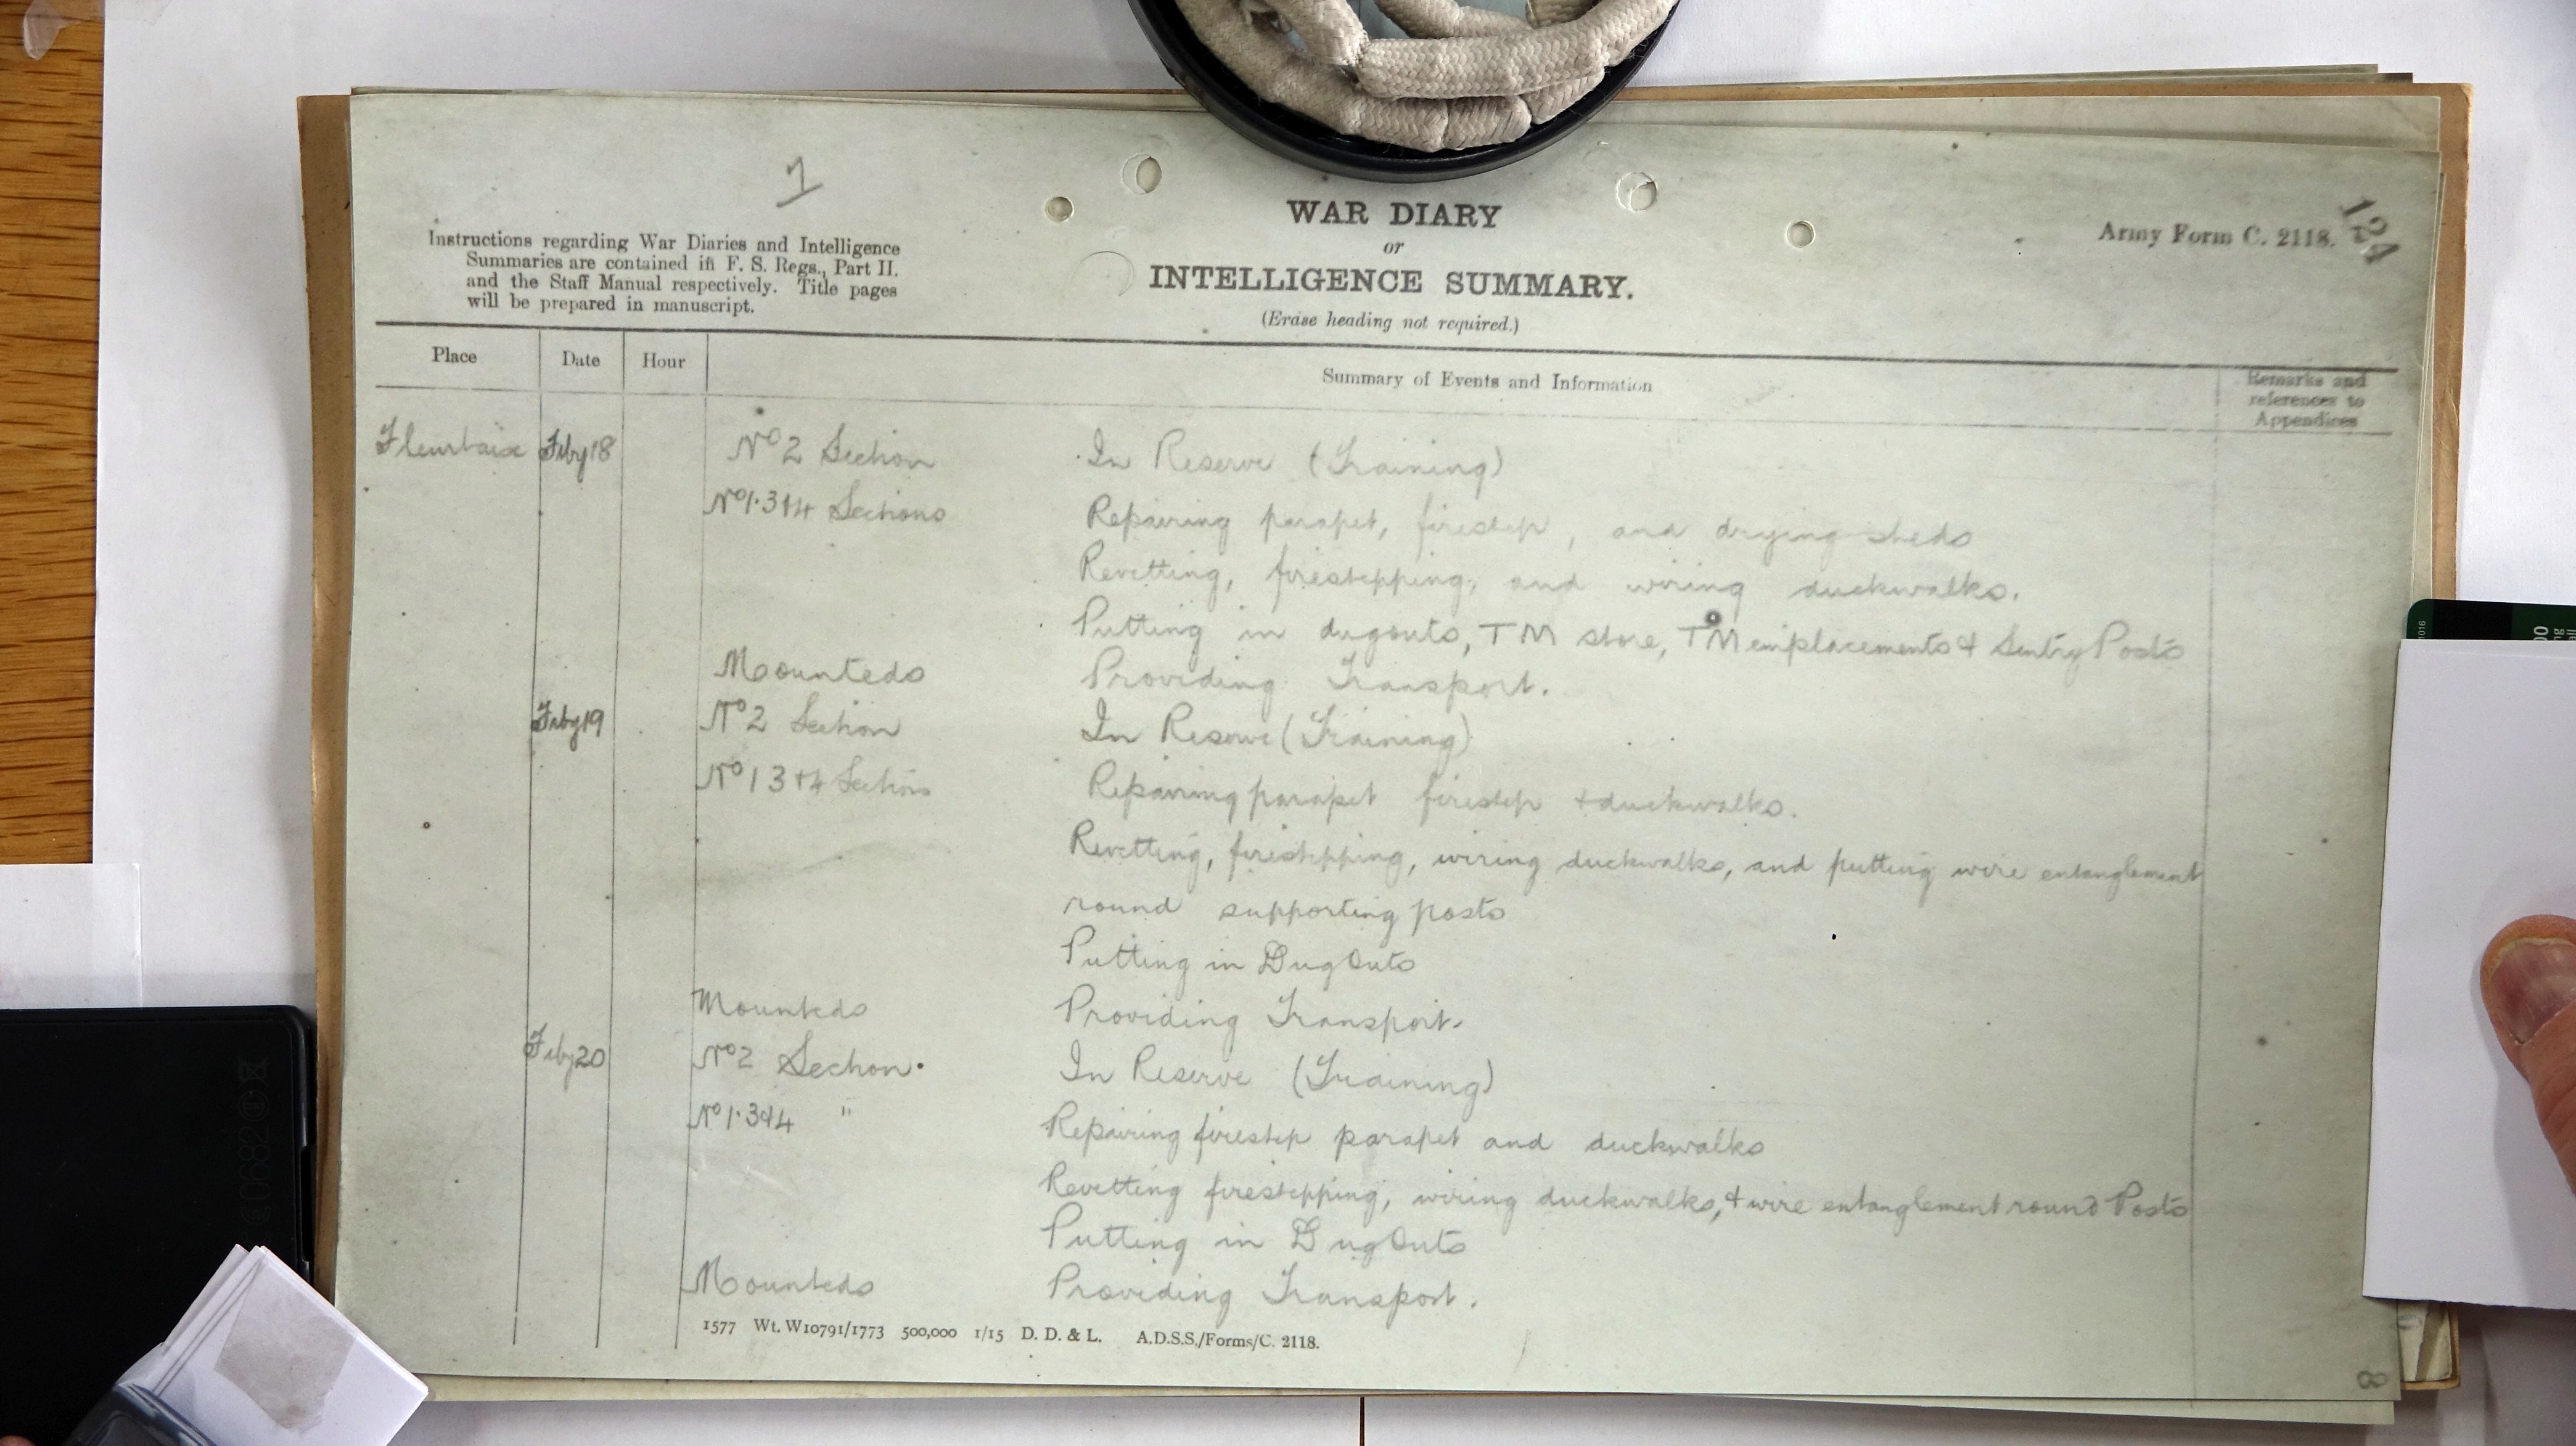 7
Army Form C. 2118.
124
Instructions regarding War Diaries and Intelligence
Summaries are contained in F. S. Regs., Part II.
and the Staff Manual respectively. Title pages
will be prepared in manuscript.
WAR DIARY
or
INTELLIGENCE SUMMARY.
(Erase heading not required.)
Place Date Hour Summary of Events and Information Remarks and
references to
Appendices
Fleurbaix Feby 18 No 2 Section In Reserve (Training)
No 1·3+4 Sections Repairing parapet, firestep, and drying sheds
Revetting, firestepping, and wiring duckwalks.
Putting in dugouts, TM store, TM emplacements & Sentry Posts
Mounteds Providing Transport.
Feby 19 No 2 Section In Reserve (Training)
No 1 3+4 Sections Repairing parapet firestep + duckwalks.
Revetting, firestepping, wiring duckwalks, and putting wire entanglement
round supporting posts
Putting in Dug Outs
Mounteds Providing Transport.
Feby 20 No 2 Section. In Reserve (Training)
No 1·3+4 " Repairing firestep parapet and duckwalks
Revetting firestepping, wiring duckwalks, + wire entanglement round Posts
Putting in Dug Outs
Mounteds Providing Transport.
1577 Wt. W10791/1773 500,000 1/15 D. D. & L. A.D.S.S./Forms/C. 2118.
8